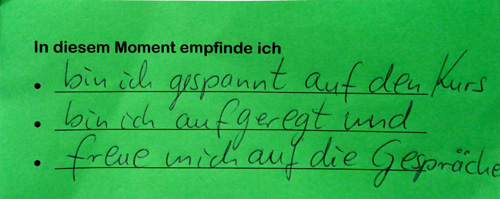 In diesem Moment empfinde ich
• bin ich gespannt auf den Kurs
• bin ich aufgeregt und
• freue mich auf die Gespräche